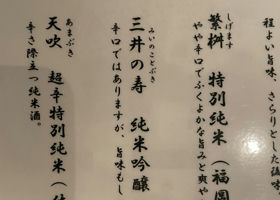 程よい旨味、さらりとした
しげます
繁桝 特別純米（福岡
やや辛口でふくよかな旨みと爽や
みいのことぶき
三井の寿 純米吟醸
辛口ではありますが、旨味もし
あまぶき
天吹 超辛特別純米（佐
辛さ際立つ純米酒。